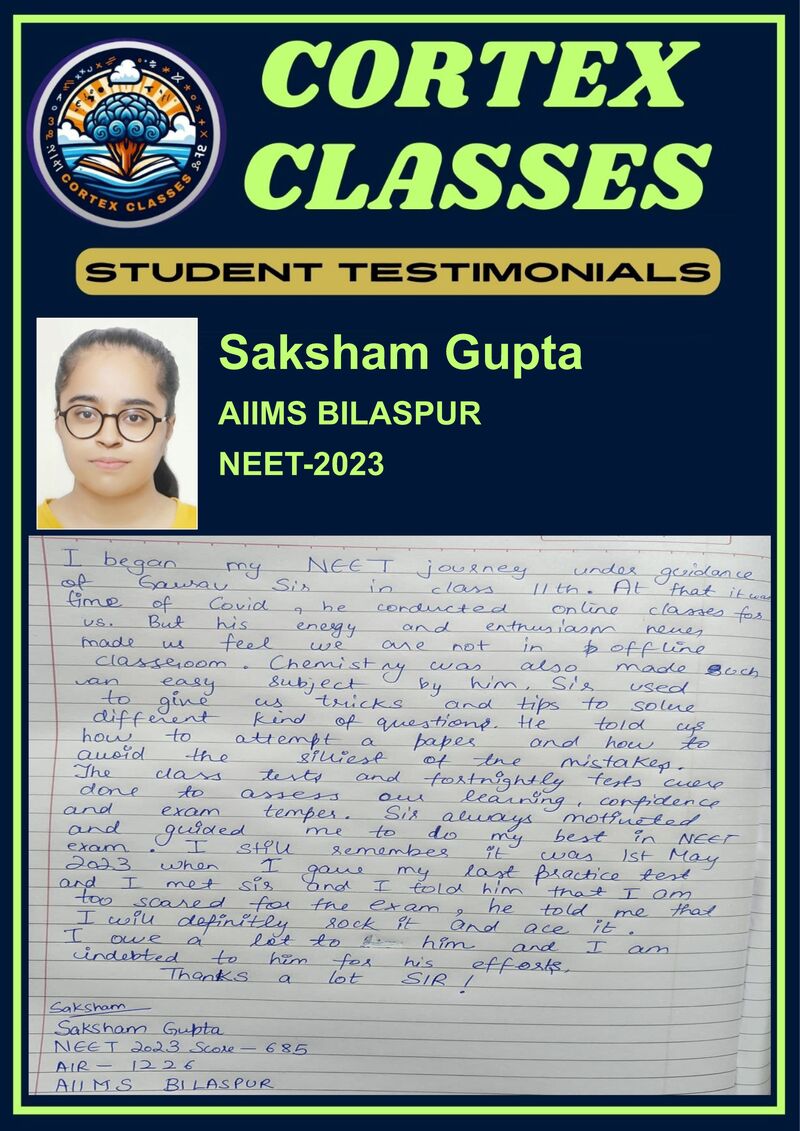 CORTEX
CLASSES
CORTEX CLASSES
STUDENT TESTIMONIALS
Saksham Gupta
AIIMS BILASPUR
NEET-2023
I began my NEET journey under guidance
of Gaurav Sir in class 11th. At that it was
time of Covid, he conducted online classes for
us. But his energy and enthusiasm never
made us feel we are not in offline
classroom. Chemistry was also made such
an easy subject by him. Sir used
to give us tricks and tips to solve
different kind of questions. He told us
how to attempt a paper and how to
avoid the silliest of the mistakes.
The class tests and fortnightly tests were
done to assess our learning, confidence
and exam temper. Sir always motivated
and guided me to do my best in NEET
exam. I still remember it was 1st May
2023 when I gave my last practice test
and I met sir and I told him that I am
too scared for the exam, he told me that
I will definitly rock it and ace it.
I owe a lot to him and I am
indebted to him for his efforts.
Thanks a lot SIR!
Saksham
Saksham Gupta
NEET 2023 Score - 685
AIR - 1226
AIIMS BILASPUR